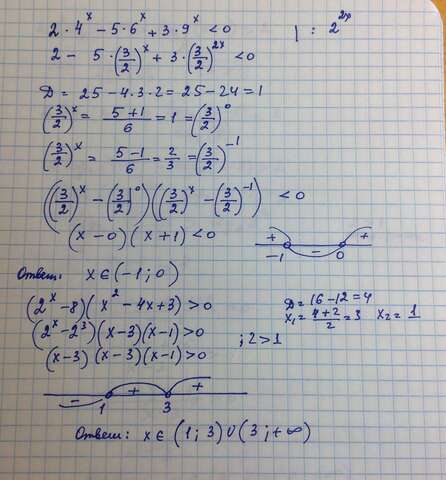 2 · 4^x − 5 · 6^x + 3 · 9^x < 0 | : 2^{2x}
2 − 5 · (3/2)^x + 3 · (3/2)^{2x} < 0
D = 25 − 4 · 3 · 2 = 25 − 24 = 1
(3/2)^x = (5 + 1)/6 = 1 = (3/2)^0
(3/2)^x = (5 − 1)/6 = 2/3 = (3/2)^{−1}
((3/2)^x − (3/2)^0)((3/2)^x − (3/2)^{−1}) < 0
(x − 0)(x + 1) < 0
+ − +
−1 0
Ответ: x ∈ (−1; 0)
(2^x − 8)(x^2 − 4x + 3) > 0
D = 16 − 12 = 4
x₁ = (4 + 2)/2 = 3 x₂ = 1
(2^x − 2^3)(x − 3)(x − 1) > 0 ; 2 > 1
(x − 3)(x − 3)(x − 1) > 0
− + +
1 3
Ответ: x ∈ (1; 3) ∪ (3; +∞)